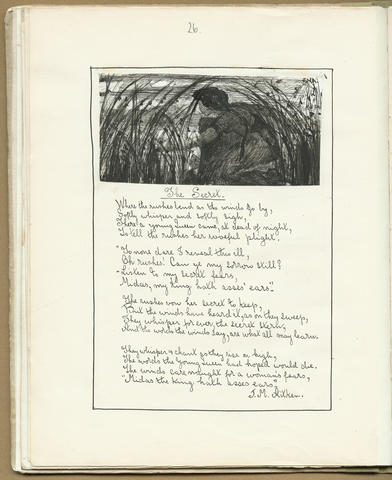 26.
The Secret.
Where the rushes bend as the winds go by,
Softly whisper and softly sigh,
There a young Queen came, at dead of night,
To tell the rushes her woeful plight.
"To none dare I reveal this ill,
Oh rushes! Can ye my sorrow still?
Listen to my secret fears,
Midas, my King hath asses' ears."
The rushes vow her secret to keep,
But the winds have heard it, as on they sweep,
They whisper for ever, the secret stern,
And the words the winds say, are what all may learn.
They whisper & chant as they rise on high,
The words the young Queen had hoped would die.
The winds care nought for a woman's fears,
"Midas the King hath asses ears".
J.M. Aitken.